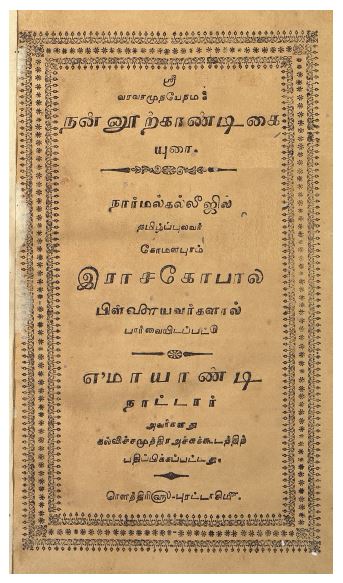 ஸ்ரீ
நன்னூற்காண்டிகை
யுரை.
நார்மல்கல்லீஜில்
தமிழ்ப்புலவர்
கோமளபுரம்
இராசகோபால
பிள்ளையவர்களால்
பார்வையிடப்பட்டு
எ-மாயாண்டி
நாட்டார்
அவர்களது
கல்விச்சமுத்திரஅச்சுக்கூடத்திற்
பதிப்பிக்கப்பட்டது.
ரௌத்திரி௵-புரட்டாசி௴.